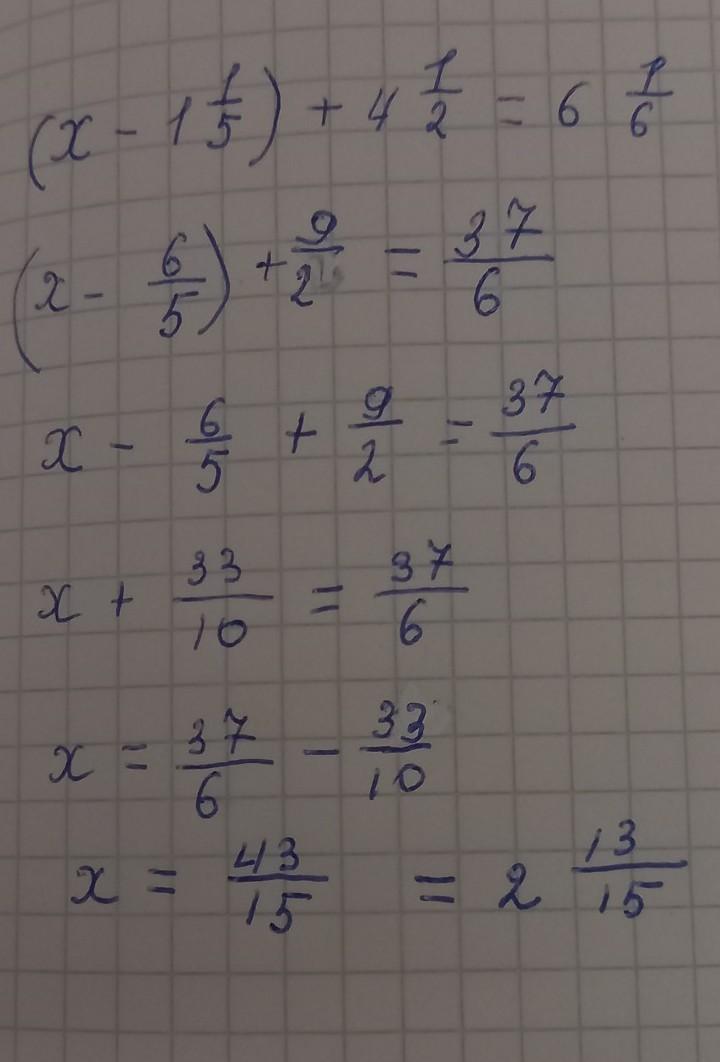 (x - 1 1/5) + 4 1/2 = 6 1/6
(x - 6/5) + 9/2 = 37/6
x - 6/5 + 9/2 = 37/6
x + 33/10 = 37/6
x = 37/6 - 33/10
x = 43/15 = 2 13/15